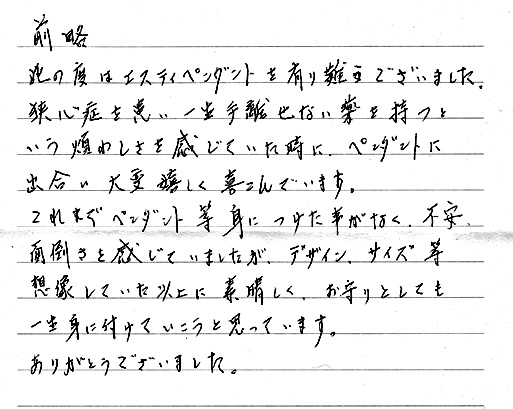 前略
此の度はエスティペンダントを有り難うございました。
狭心症を患い一生手離せない薬を持つと
いう煩わしさを感じていた時に、ペンダントに
出合い大変嬉しく喜こんでいます。
これまでペンダント等身につけた事がなく、不安、
面倒さを感じていましたが、デザイン、サイズ等
想像していた以上に素晴しく、お守りとしても
一生身に付けていこうと思っています。
ありがとうございました。